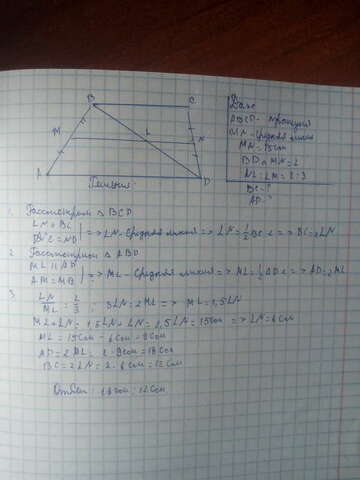 B C
Дано
ABCD - трапеция
MN - средняя линия
MN = 15см
BD ∩ MN = L
NL : LM = 2 : 3
BC - ?
AD - ?
M L N
A D
Решение
1. Рассмотрим Δ BCD
LN ∥ BC
NC = ND => LN - средняя линия => LN = 1/2 BC => BC = 2LN
2. Рассмотрим Δ ABD
ML ∥ AD
AM = MB => ML - средняя линия => ML = 1/2 AD => AD = 2ML
3. LN/ML = 2/3 ; 3LN = 2ML => ML = 1,5LN
ML + LN = 1,5LN + LN = 2,5LN = 15см => LN = 6см
ML = 15см - 6см = 9см
AD = 2ML = 2 · 9см = 18см
BC = 2LN = 2 · 6см = 12см
Ответ: 18см; 12см